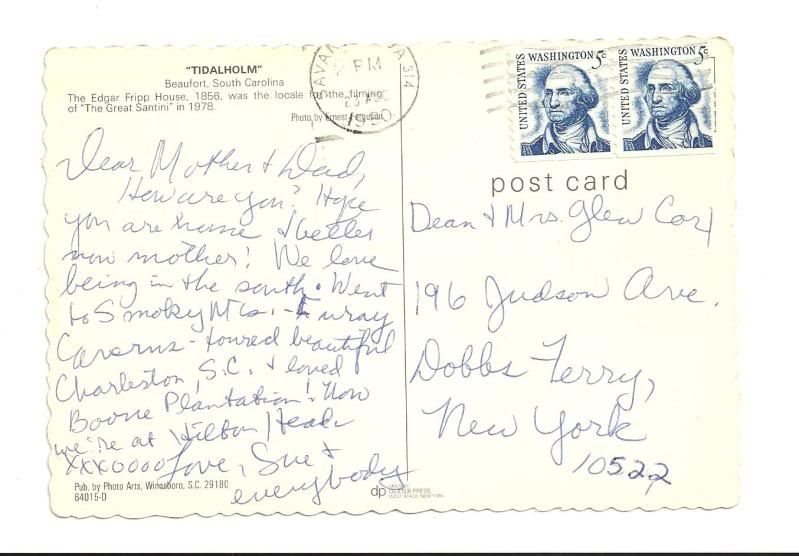 "TIDALHOLM"
Beaufort, South Carolina
The Edgar Fripp House, 1856, was the locale for the filming
of "The Great Santini" in 1978.
Photo by Ernest Ferguson
Dear Mother & Dad,
How are you? Hope
you are home & better
now mother! We love
being in the south. Went
to Smoky Mts. - Luray
Caverns - toured beautiful
Charleston, S.C. & loved
Boone Plantation! Now
we're at Hilton Head
xxxoooo Love, Sue &
everybody
Pub. by Photo Arts, Winnsboro, S.C. 29180
64015-D
SAVANNAH GA 314
PM
1980
UNITED STATES WASHINGTON 5c
UNITED STATES WASHINGTON 5c
post card
Dean & Mrs. Glen Cox
196 Judson Ave.
Dobbs Ferry,
New York
10522
dp
DEXTER PRESS
WEST NYACK, NEW YORK